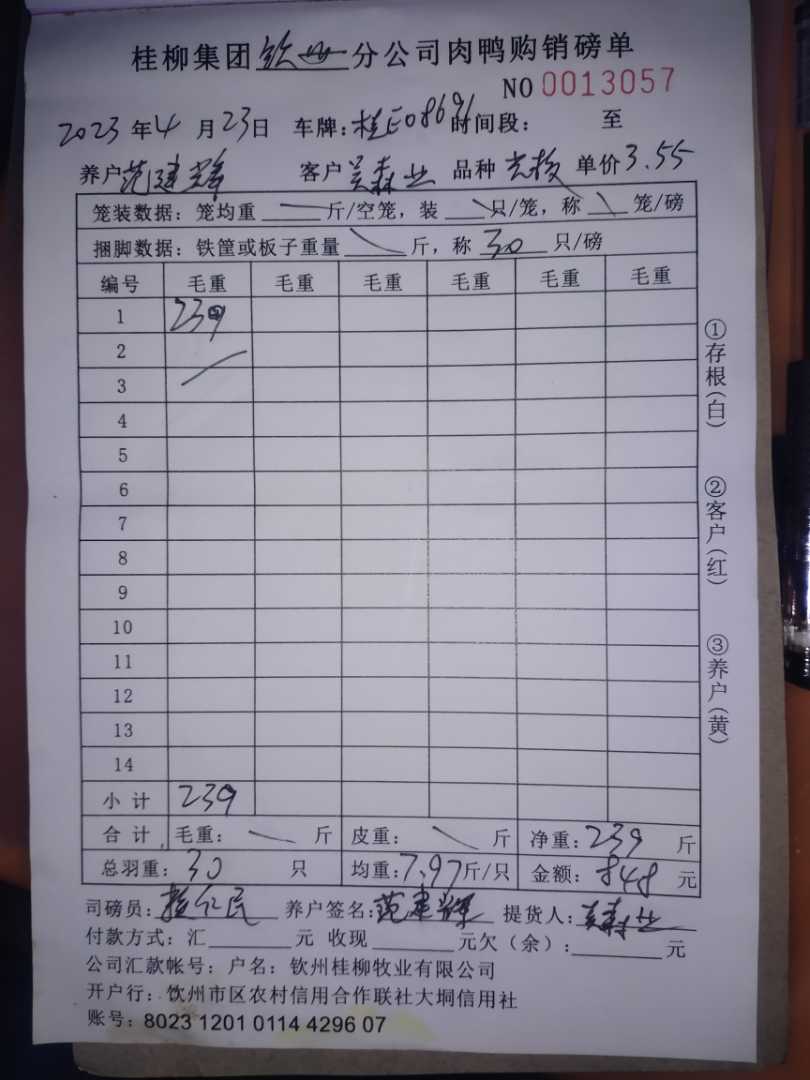 桂柳集团钦州分公司肉鸭购销磅单
NO 0013057
2023年4月23日 车牌:桂E08691 时间段: 至
养户范建辉 客户吴森业 品种 单价3.55
笼装数据: 笼均重 斤/空笼, 装 只/笼, 称 笼/磅
捆脚数据: 铁筐或板子重量 斤, 称 30 只/磅
编号 毛重 毛重 毛重 毛重 毛重 毛重
1 239
2
3
4
5
6
7
8
9
10
11
12
13
14
小计 239
合计 毛重: 斤 皮重: 斤 净重: 239 斤
总羽重: 30 只 均重: 7.97斤/只 金额: 848 元
司磅员: 养户签名: 范建辉 提货人: 吴森业
付款方式: 汇 元 收现 元欠(余): 元
公司汇款帐号: 户名: 钦州桂柳牧业有限公司
开户行: 钦州市区农村信用合作联社大垌信用社
账号: 8023 1201 0114 4296 07
①存根(白)
②客户(红)
③养户(黄)